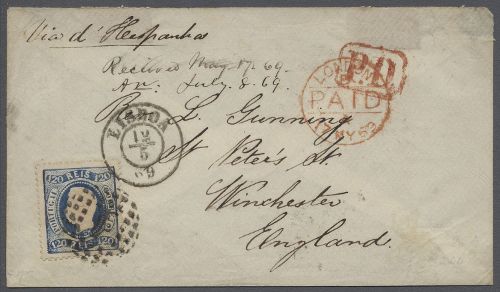 Via d' Hespanha
Received May 17. 69.
An: July. 8. 69.
P.D.
LONDON
PAID
MY 69
R. L. Gunning
St Peter's St
Winchester
England.
LISBOA
12
5
69
120 REIS 120
120 REIS 120